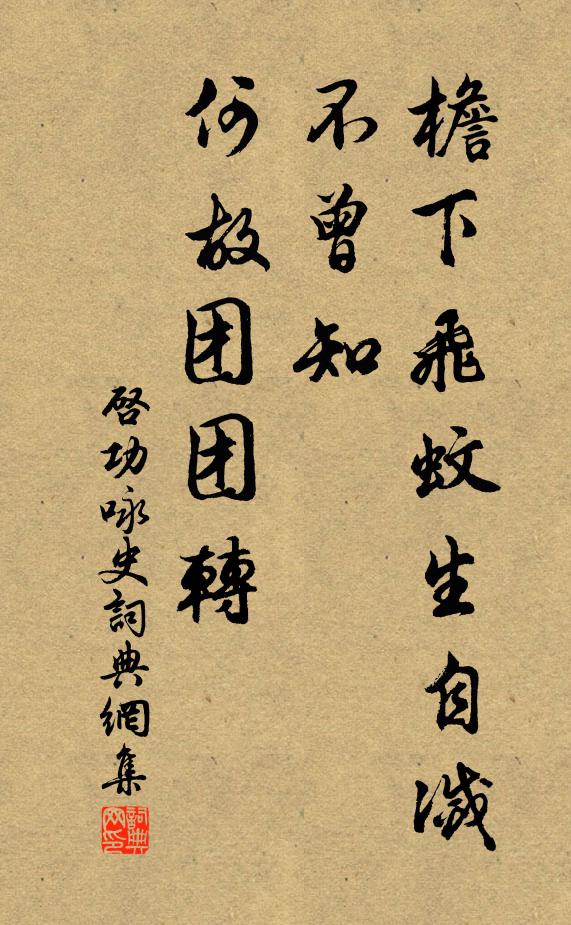 檐下飛蚊生自滅
不曾知
何故团团轉
啓功咏史詞典網集
詞典网印